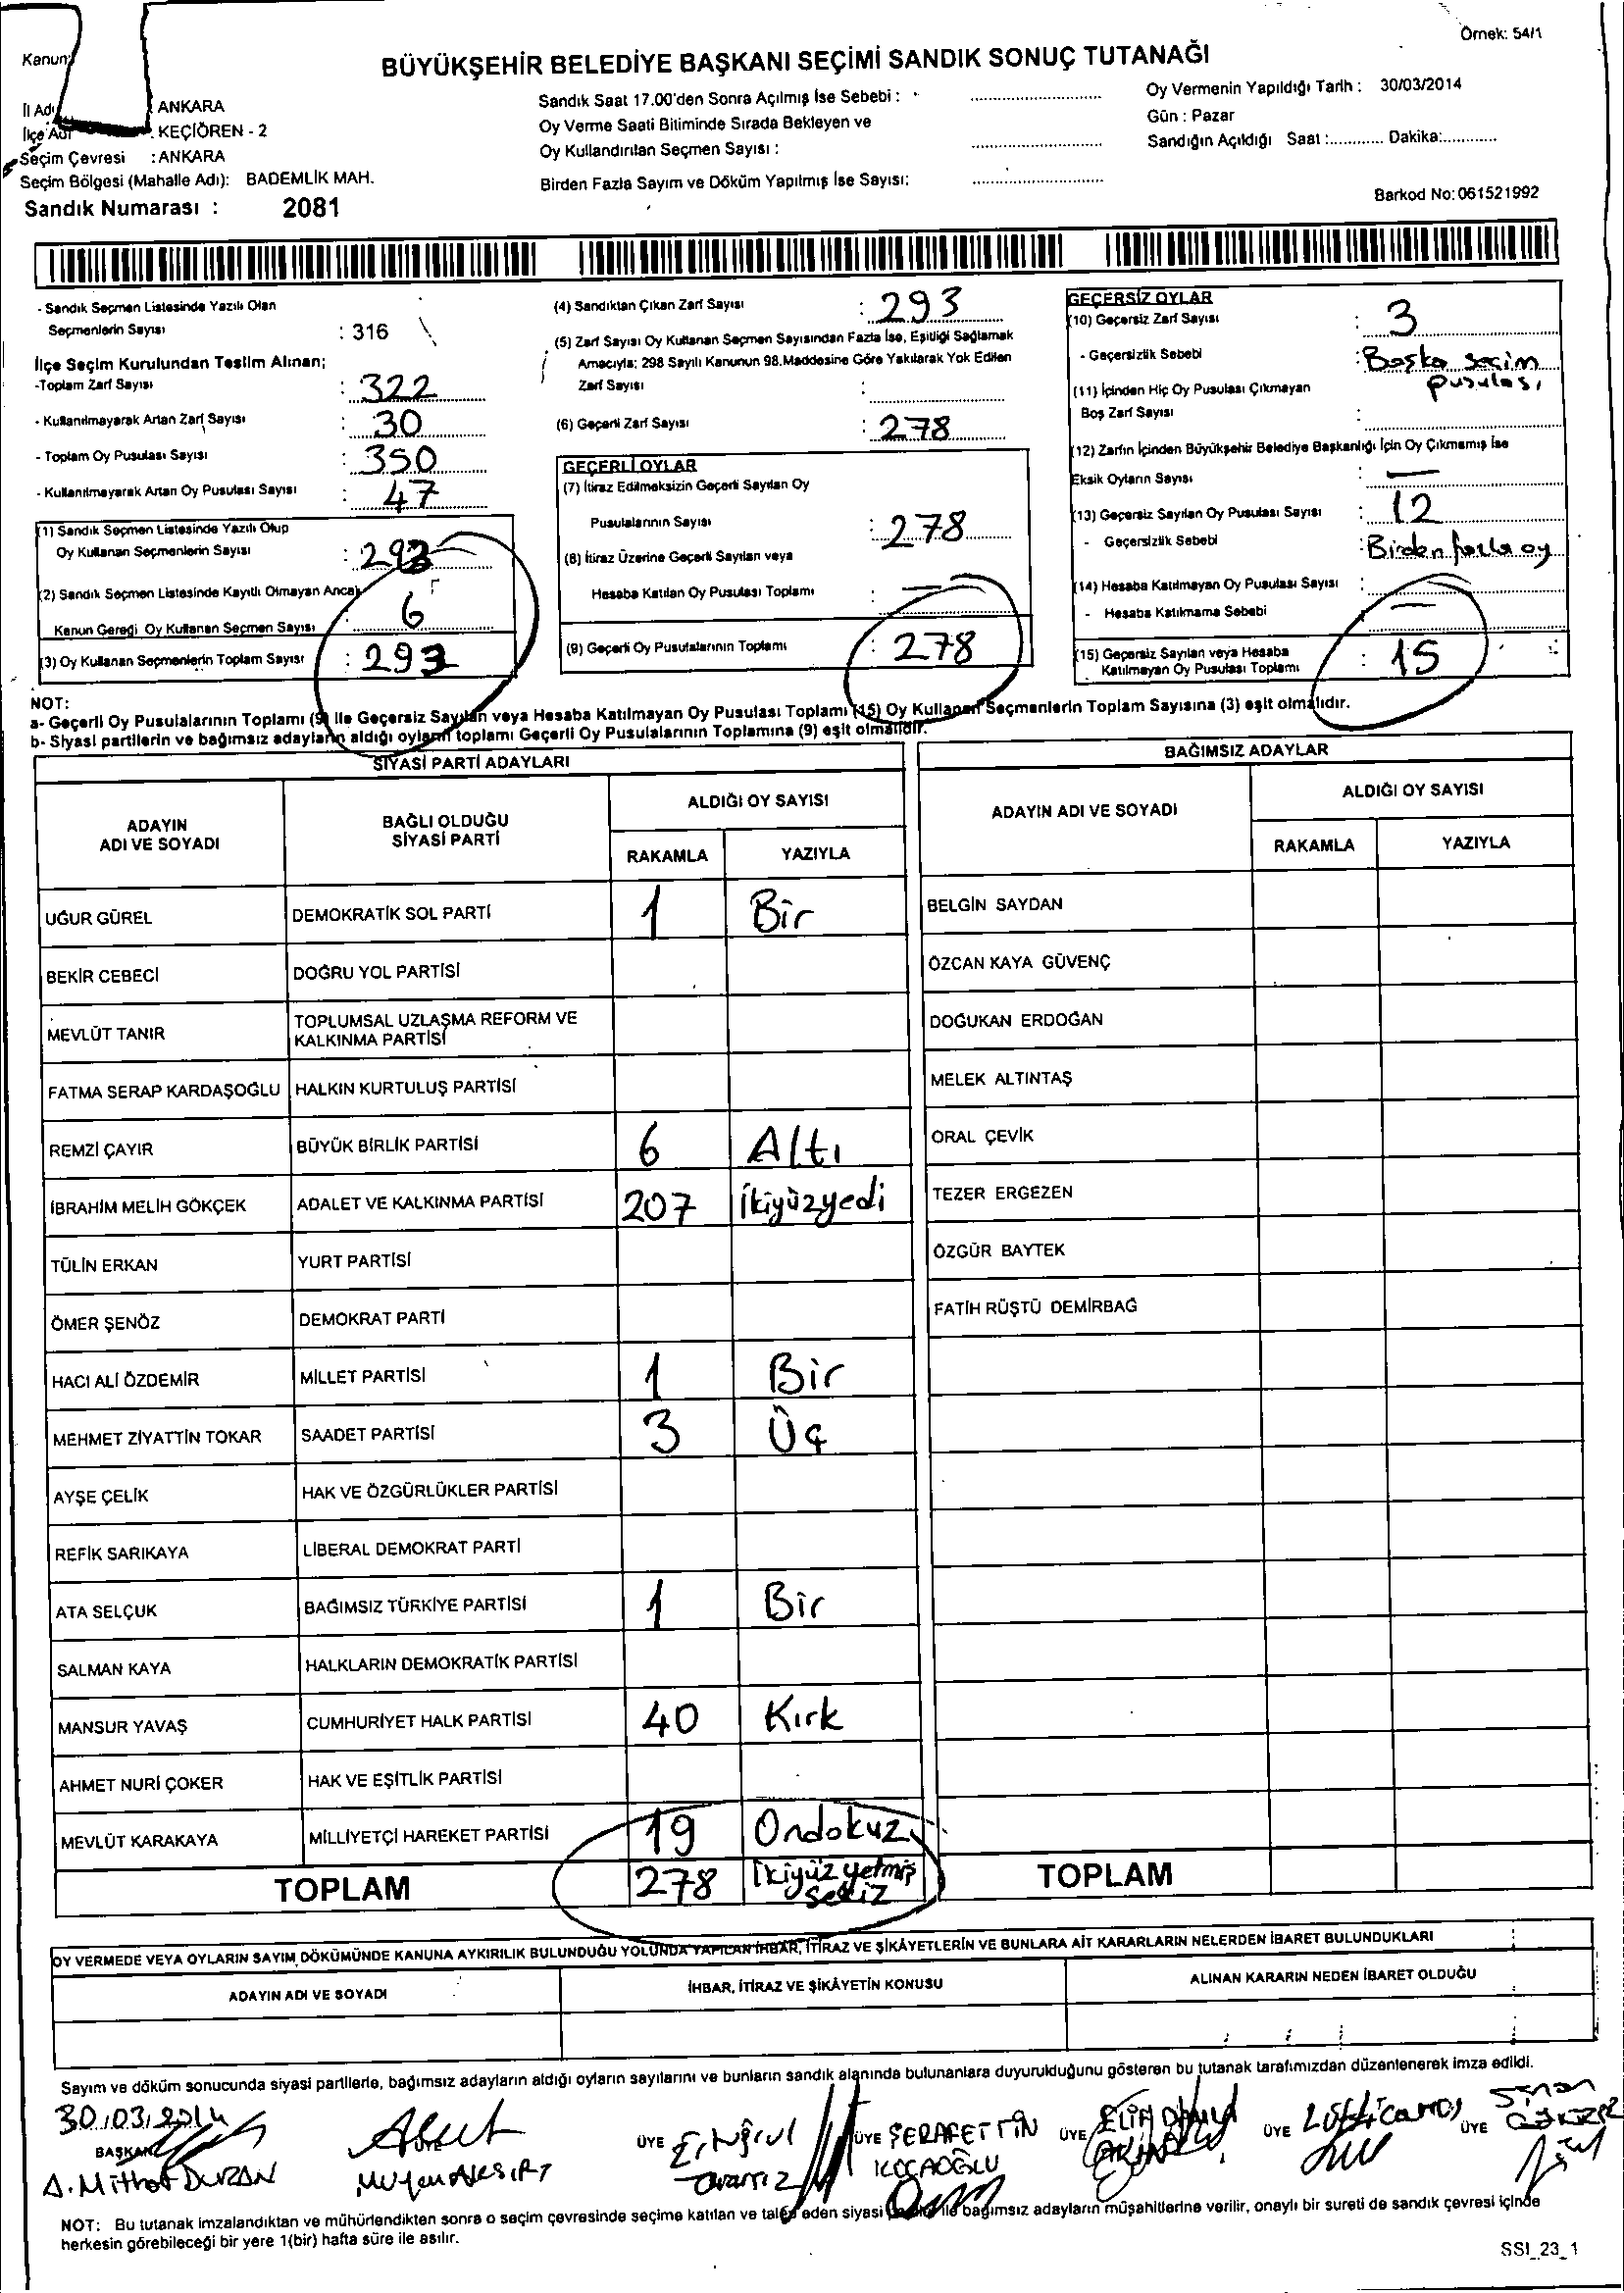 Örnek: 54/1
Kanun
BÜYÜKŞEHİR BELEDİYE BAŞKANI SEÇİMİ SANDIK SONUÇ TUTANAĞI
İl Adı : ANKARA
İlçe Adı : KEÇİÖREN - 2
Seçim Çevresi : ANKARA
Seçim Bölgesi (Mahalle Adı): BADEMLİK MAH.
Sandık Numarası : 2081
Sandık Saat 17.00'den Sonra Açılmış İse Sebebi :
Oy Verme Saati Bitiminde Sırada Bekleyen ve
Oy Kullandırılan Seçmen Sayısı :
Birden Fazla Sayım ve Döküm Yapılmış İse Sayısı:
Oy Vermenin Yapıldığı Tarih : 30/03/2014
Gün : Pazar
Sandığın Açıldığı Saat :............ Dakika:............
Barkod No: 061521992
- Sandık Seçmen Listesinde Yazılı Olan
Seçmenlerin Sayısı : 316
İlçe Seçim Kurulundan Teslim Alınan;
-Toplam Zarf Sayısı : 322
- Kullanılmayarak Artan Zarf Sayısı : 30
- Toplam Oy Pusulası Sayısı : 350
- Kullanılmayarak Artan Oy Pusulası Sayısı : 47
(1) Sandık Seçmen Listesinde Yazılı Olup
Oy Kullanan Seçmenlerin Sayısı :
(2) Sandık Seçmen Listesinde Kayıtlı Olmayan Ancak
Kanun Gereği Oy Kullanan Seçmen Sayısı : 6
(3) Oy Kullanan Seçmenlerin Toplam Sayısı : 293
(4) Sandıktan Çıkan Zarf Sayısı : 293
(5) Zarf Sayısı Oy Kullanan Seçmen Sayısından Fazla İse, Eşitliği Sağlamak
Amacıyla; 298 Sayılı Kanunun 98.Maddesine Göre Yakılarak Yok Edilen
Zarf Sayısı :
(6) Geçerli Zarf Sayısı : 278
GEÇERLİ OYLAR
(7) İtiraz Edilmeksizin Geçerli Sayılan Oy
Pusulalarının Sayısı : 278
(8) İtiraz Üzerine Geçerli Sayılan veya
Hesaba Katılan Oy Pusulası Toplamı : —
(9) Geçerli Oy Pusulalarının Toplamı : 278
GEÇERSİZ OYLAR
(10) Geçersiz Zarf Sayısı : 3
- Geçersizlik Sebebi : Başka seçim
pusulası
(11) İçinden Hiç Oy Pusulası Çıkmayan
Boş Zarf Sayısı :
(12) Zarfın İçinden Büyükşehir Belediye Başkanlığı İçin Oy Çıkmamış İse
Eksik Oyların Sayısı : —
(13) Geçersiz Sayılan Oy Pusulası Sayısı : 12
- Geçersizlik Sebebi : Birden fazla oy
(14) Hesaba Katılmayan Oy Pusulası Sayısı :
- Hesaba Katılmama Sebebi —
(15) Geçersiz Sayılan veya Hesaba
Katılmayan Oy Pusulası Toplamı : 15
NOT:
a- Geçerli Oy Pusulalarının Toplamı (9) İle Geçersiz Sayılan veya Hesaba Katılmayan Oy Pusulası Toplamı (15) Oy Kullanan Seçmenlerin Toplam Sayısına (3) eşit olmalıdır.
b- Siyasi partilerin ve bağımsız adayların aldığı oyların toplamı Geçerli Oy Pusulalarının Toplamına (9) eşit olmalıdır.
SİYASİ PARTİ ADAYLARI
ADAYIN
ADI VE SOYADI
BAĞLI OLDUĞU
SİYASİ PARTİ
ALDIĞI OY SAYISI
RAKAMLA YAZIYLA
UĞUR GÜREL DEMOKRATİK SOL PARTİ 1 Bir
BEKİR CEBECİ DOĞRU YOL PARTİSİ
MEVLÜT TANIR TOPLUMSAL UZLAŞMA REFORM VE
KALKINMA PARTİSİ
FATMA SERAP KARDAŞOĞLU HALKIN KURTULUŞ PARTİSİ
REMZİ ÇAYIR BÜYÜK BİRLİK PARTİSİ 6 Altı
İBRAHİM MELİH GÖKÇEK ADALET VE KALKINMA PARTİSİ 207 İkiyüzyedi
TÜLİN ERKAN YURT PARTİSİ
ÖMER ŞENÖZ DEMOKRAT PARTİ
HACI ALİ ÖZDEMİR MİLLET PARTİSİ 1 Bir
MEHMET ZİYATTİN TOKAR SAADET PARTİSİ 3 Üç
AYŞE ÇELİK HAK VE ÖZGÜRLÜKLER PARTİSİ
REFİK SARIKAYA LİBERAL DEMOKRAT PARTİ
ATA SELÇUK BAĞIMSIZ TÜRKİYE PARTİSİ 1 Bir
SALMAN KAYA HALKLARIN DEMOKRATİK PARTİSİ
MANSUR YAVAŞ CUMHURİYET HALK PARTİSİ 40 Kırk
AHMET NURİ ÇOKER HAK VE EŞİTLİK PARTİSİ
MEVLÜT KARAKAYA MİLLİYETÇİ HAREKET PARTİSİ 19 Ondokuz
TOPLAM 278 İkiyüz yetmiş
sekiz
BAĞIMSIZ ADAYLAR
ADAYIN ADI VE SOYADI
ALDIĞI OY SAYISI
RAKAMLA YAZIYLA
BELGİN SAYDAN
ÖZCAN KAYA GÜVENÇ
DOĞUKAN ERDOĞAN
MELEK ALTINTAŞ
ORAL ÇEVİK
TEZER ERGEZEN
ÖZGÜR BAYTEK
FATİH RÜŞTÜ DEMİRBAĞ
TOPLAM
OY VERMEDE VEYA OYLARIN SAYIM DÖKÜMÜNDE KANUNA AYKIRILIK BULUNDUĞU YOLUNDA YAPILAN İHBAR, İTİRAZ VE ŞİKÂYETLERİN VE BUNLARA AİT KARARLARIN NELERDEN İBARET BULUNDUKLARI
ADAYIN ADI VE SOYADI İHBAR, İTİRAZ VE ŞİKÂYETİN KONUSU ALINAN KARARIN NEDEN İBARET OLDUĞU
Sayım ve döküm sonucunda siyasi partilerle, bağımsız adayların aldığı oyların sayılarını ve bunların sandık alanında bulunanlara duyurulduğunu gösteren bu tutanak tarafımızdan düzenlenerek imza edildi.
30.03.2014
BAŞKAN
A. Mithat DURAN
ÜYE Ertuğrul
ÜYE ŞERAFETTİN
KOÇAOĞLU
ÜYE ELİF
ÜYE
ÜYE Sinan
NOT: Bu tutanak imzalandıktan ve mühürlendikten sonra o seçim çevresinde seçime katılan ve talep eden siyasi ile bağımsız adayların müşahitlerine verilir, onaylı bir sureti de sandık çevresi içinde
herkesin görebileceği bir yere 1(bir) hafta süre ile asılır.
SSI_23_1